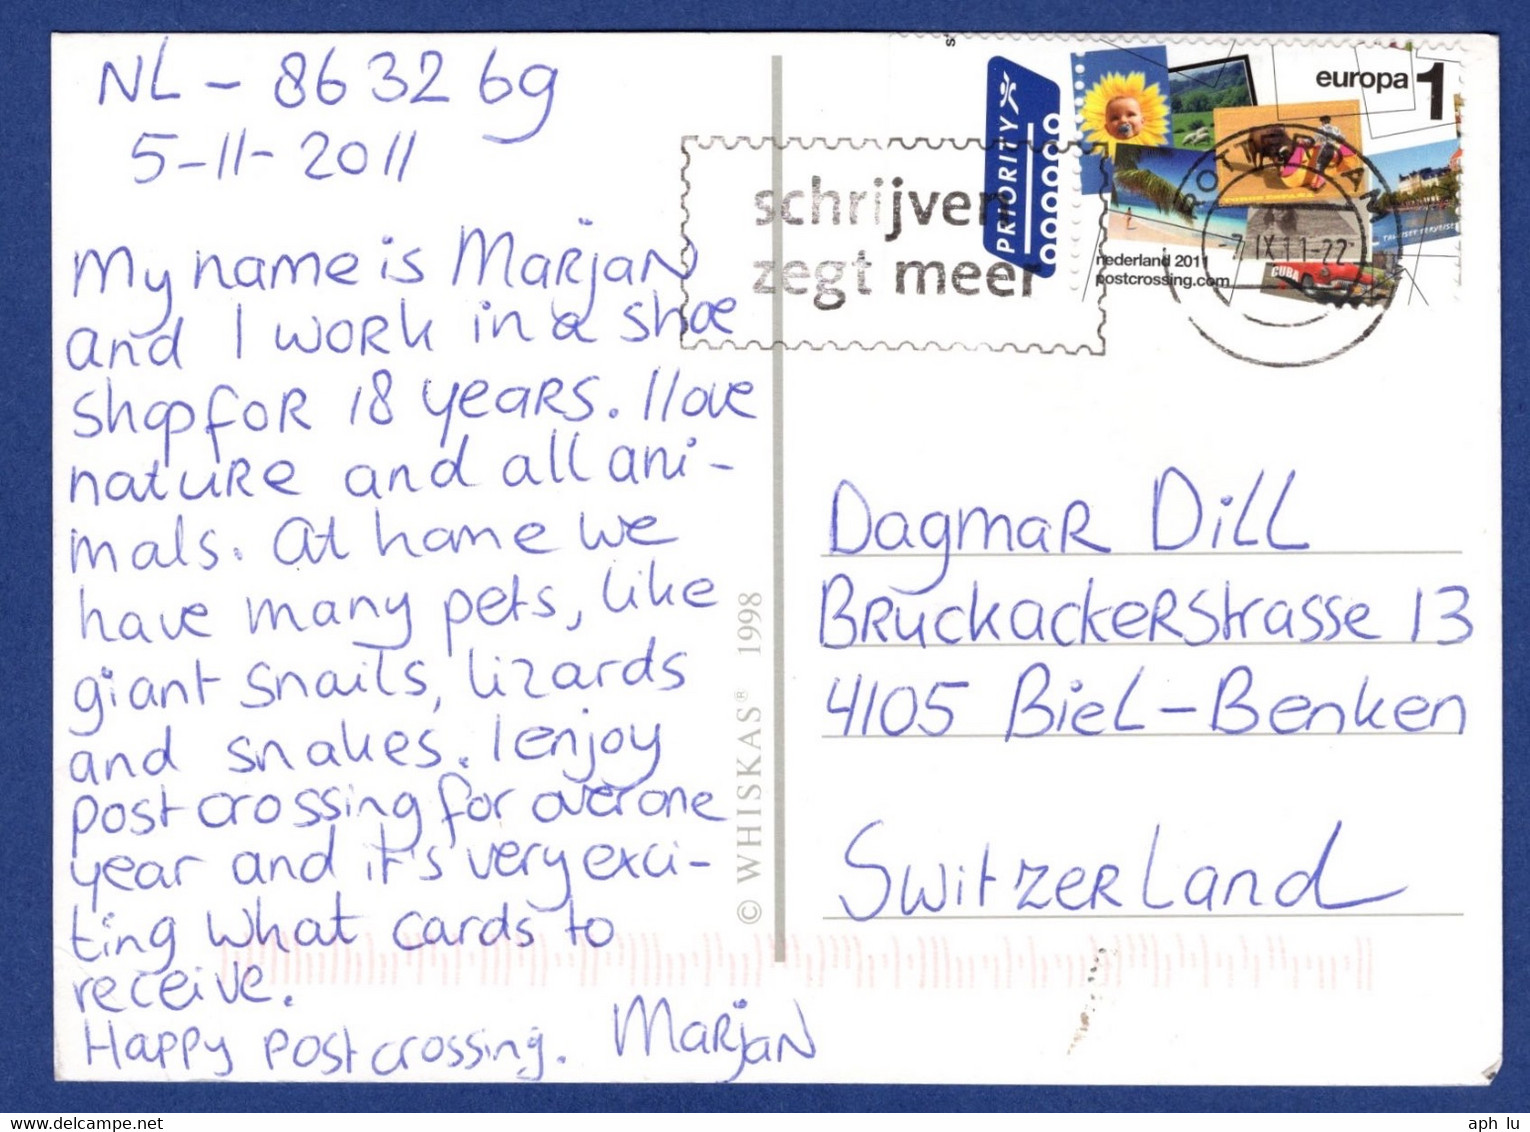 NL - 8632 69
5-11-2011
My name is Marjan
and I work in a shoe
shop for 18 years. I love
nature and all ani-
mals. At home we
have many pets, like
giant snails, lizards
and snakes. I enjoy
postcrossing for over one
year and it's very exci-
ting what cards to
receive.
Happy postcrossing. Marjan
© WHISKAS® 1998
schrijven
zegt meer
PRIORITY
europa 1
nederland 2011
postcrossing.com
CUBA
ROTTERDAM
-7.IX.11-22
Dagmar Dill
Bruckackerstrasse 13
4105 Biel-Benken
Switzerland
aph lu